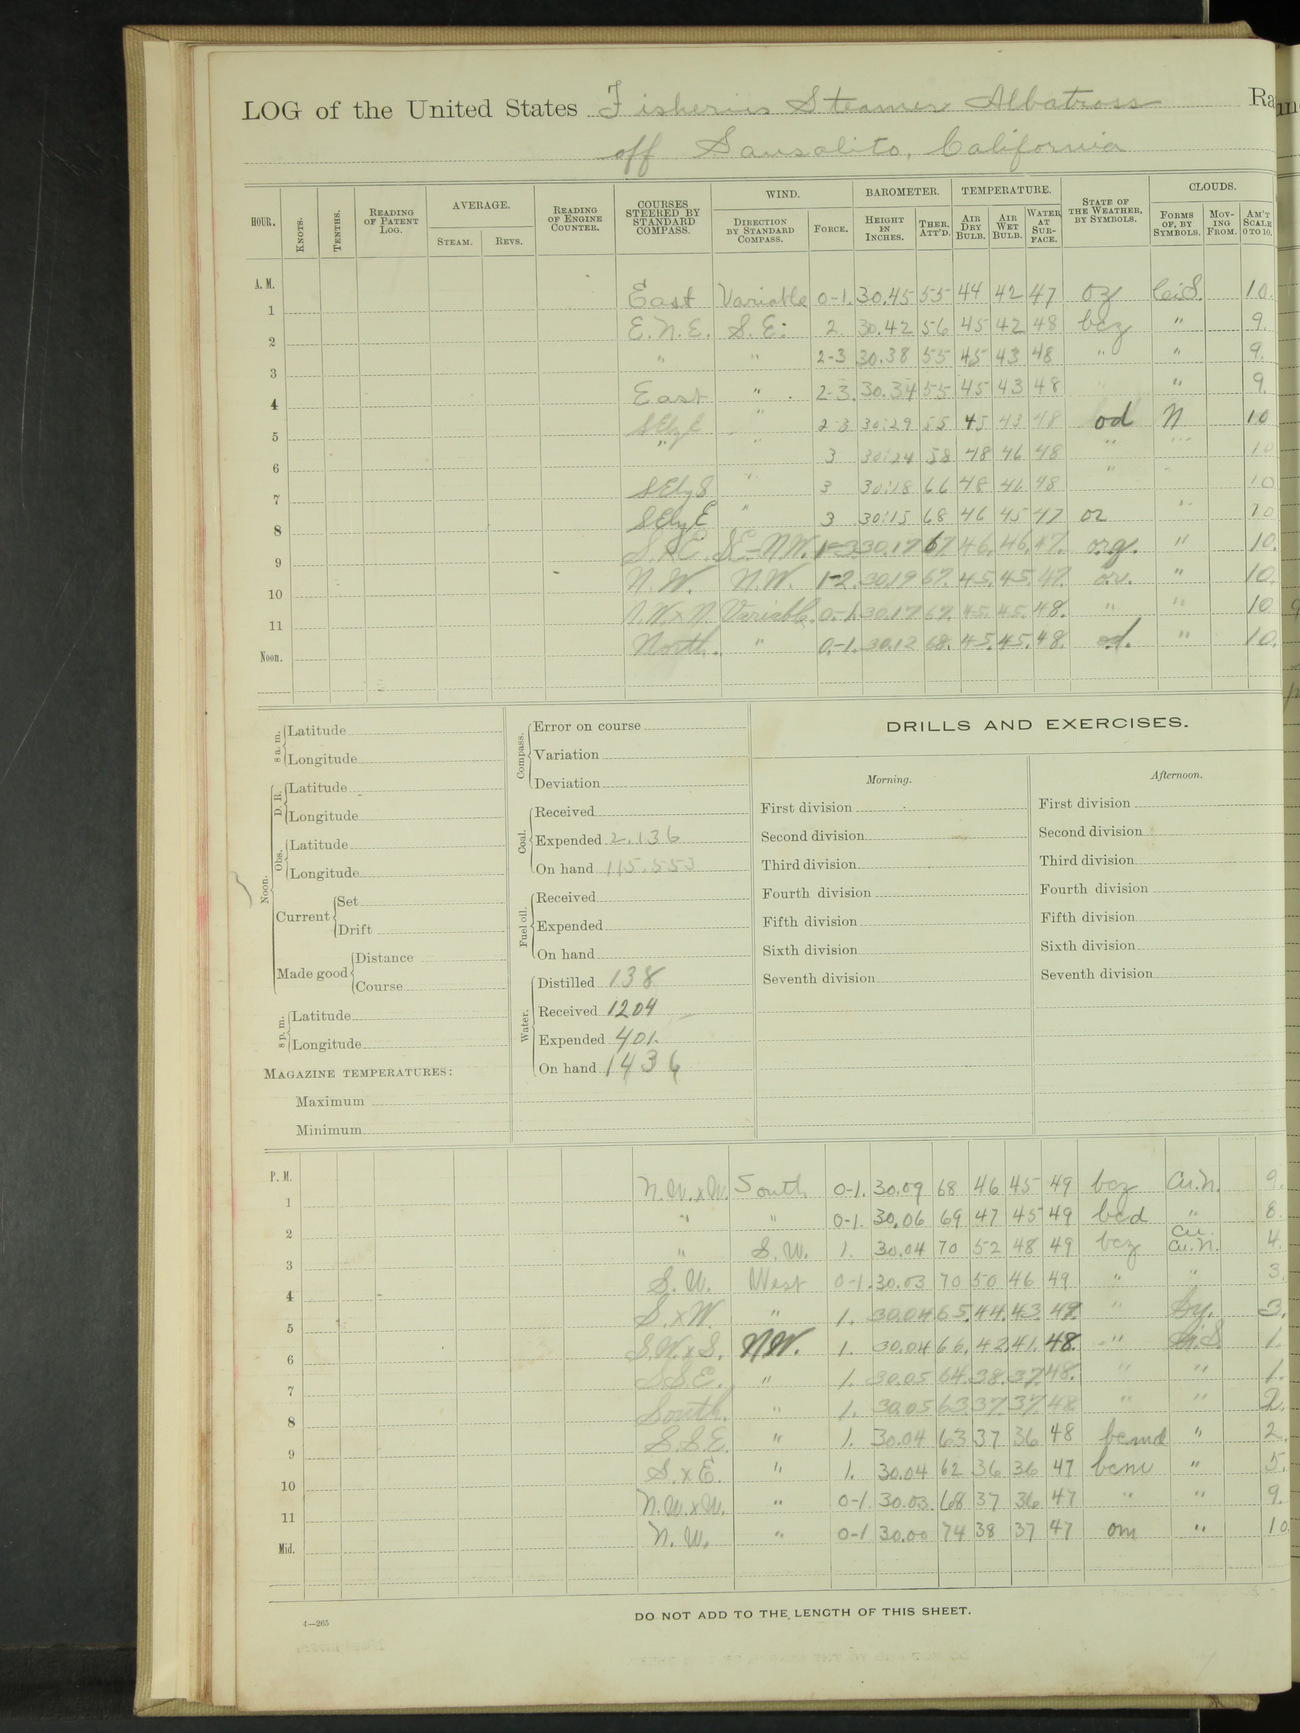 LOG of the United States Fisheries Steamer Albatross Ra
off Sausalito, California
HOUR. KNOTS. TENTHS. READING OF PATENT LOG. AVERAGE. STEAM. REVS. READING OF ENGINE COUNTER. COURSES STEERED BY STANDARD COMPASS. WIND. DIRECTION BY STANDARD COMPASS. FORCE. BAROMETER. HEIGHT IN INCHES. THER. ATT'D. TEMPERATURE. AIR DRY BULB. AIR WET BULB. WATER AT SURFACE. STATE OF THE WEATHER, BY SYMBOLS. CLOUDS. FORMS OF, BY SYMBOLS. MOVING FROM. AM'T SCALE 0 TO 10.
A. M.
1 East Variable 0-1. 30.45 55 44 42 47 oz Ci.S. 10.
2 E.N.E. S.E. 2. 30.42 56 45 42 48 bcz " 9.
3 " " 2-3 30.38 55 45 43 48 " " 9.
4 East " 2-3. 30.34 55 45 43 48 " 9.
5 SEbyE " 2-3 30.29 55 45 43 48 od N 10
6 " " 3 30.24 58 48 46 48 " " 10
7 SEbyS " 3 30.18 66 48 46 48 " 10
8 SEbyE " 3 30.15 68 46 45 47 or " 10
9 S.xE. SE-NW. 1-3 30.17 67 46. 46. 47. o.r.q. " 10.
10 N.W. N.W. 1-2. 30.19 67. 45. 45. 47. o.r. " 10.
11 N.W.xN. Variable. 0-1. 30.17 67. 45. 45. 48. " " 10
Noon. North. " 0-1. 30.12 68. 45. 45. 48. od. " 10.
8 a. m. Latitude
Longitude
Noon. D. R. Latitude
Longitude
Obs. Latitude
Longitude
Current Set
Drift
Made good Distance
Course
8 p. m. Latitude
Longitude
MAGAZINE TEMPERATURES:
Maximum
Minimum
Compass. Error on course
Variation
Deviation
Coal. Received
Expended 2.136
On hand 115.553
Fuel oil. Received
Expended
On hand
Water. Distilled 138
Received 1204
Expended 401.
On hand 1436
DRILLS AND EXERCISES.
Morning. Afternoon.
First division First division
Second division Second division
Third division Third division
Fourth division Fourth division
Fifth division Fifth division
Sixth division Sixth division
Seventh division Seventh division
P. M.
1 N.W.xW. South 0-1. 30.09 68 46 45 49 bcz Cu.N. 9.
2 " " 0-1. 30.06 69 47 45 49 bcd " 8.
3 " S.W. 1. 30.04 70 52 48 49 bcz Cu. Cu.N. 4.
4 S.W. West 0-1. 30.03 70 50 46 49 " " 3.
5 S.xW. " 1. 30.04 65. 44. 43. 49. " 3.
6 S.W.xS. NW. 1. 30.04 66. 42. 41. 48. " Ci.S. 1.
7 S.S.E. " 1. 30.05 64. 38. 37. 48. " " 1.
8 South. " 1. 30.05 63. 37. 37. 48 " " 2.
9 S.S.E. " 1. 30.04 63 37 36 48 bcmd " 2.
10 S.xE. " 1. 30.04 62 36 36 47 bcm " 5.
11 N.W.xW. " 0-1. 30.03. 68 37 36 47 " " 9.
Mid. N.W. " 0-1 30.00 74 38 37 47 om " 10
4—265
DO NOT ADD TO THE LENGTH OF THIS SHEET.